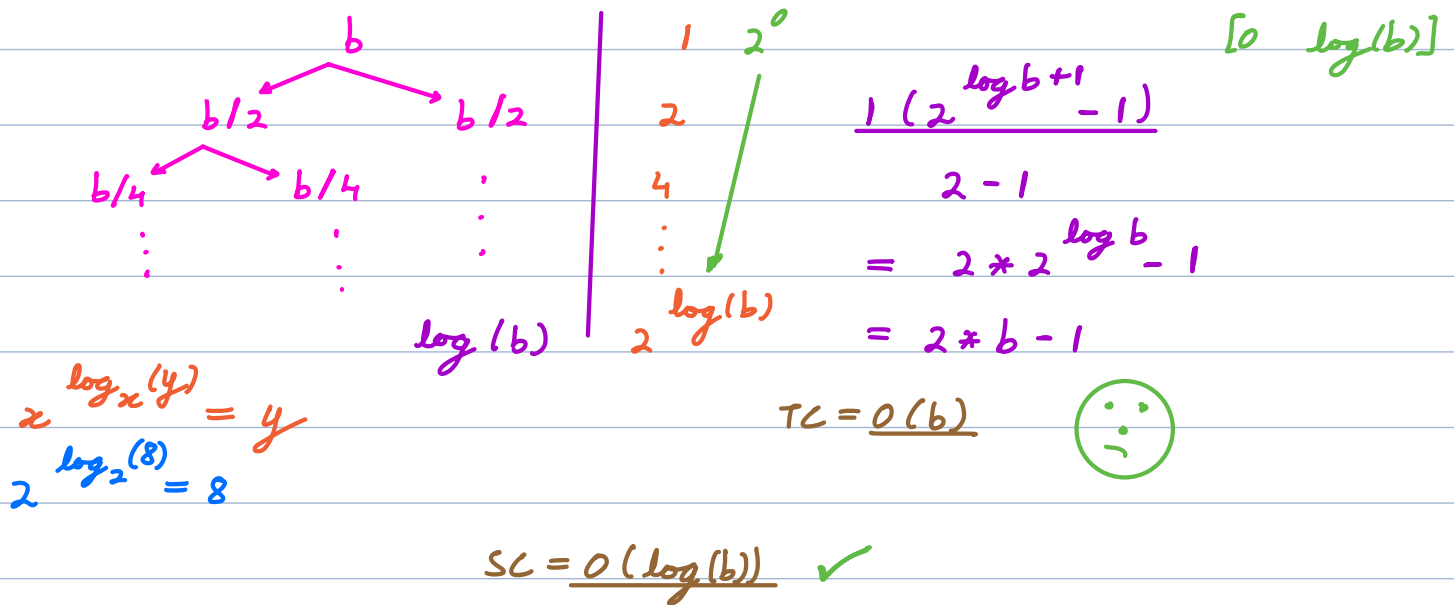 b
b/2 b/2
b/4 b/4
log(b)
1 2^0
2
4
2^log(b)
[0 log(b)]
1 (2^log b+1 - 1)
2 - 1
= 2 * 2^log b - 1
= 2 * b - 1
x^log_x(y) = y
2^log_2(8) = 8
TC = O(b)
SC = O(log(b))